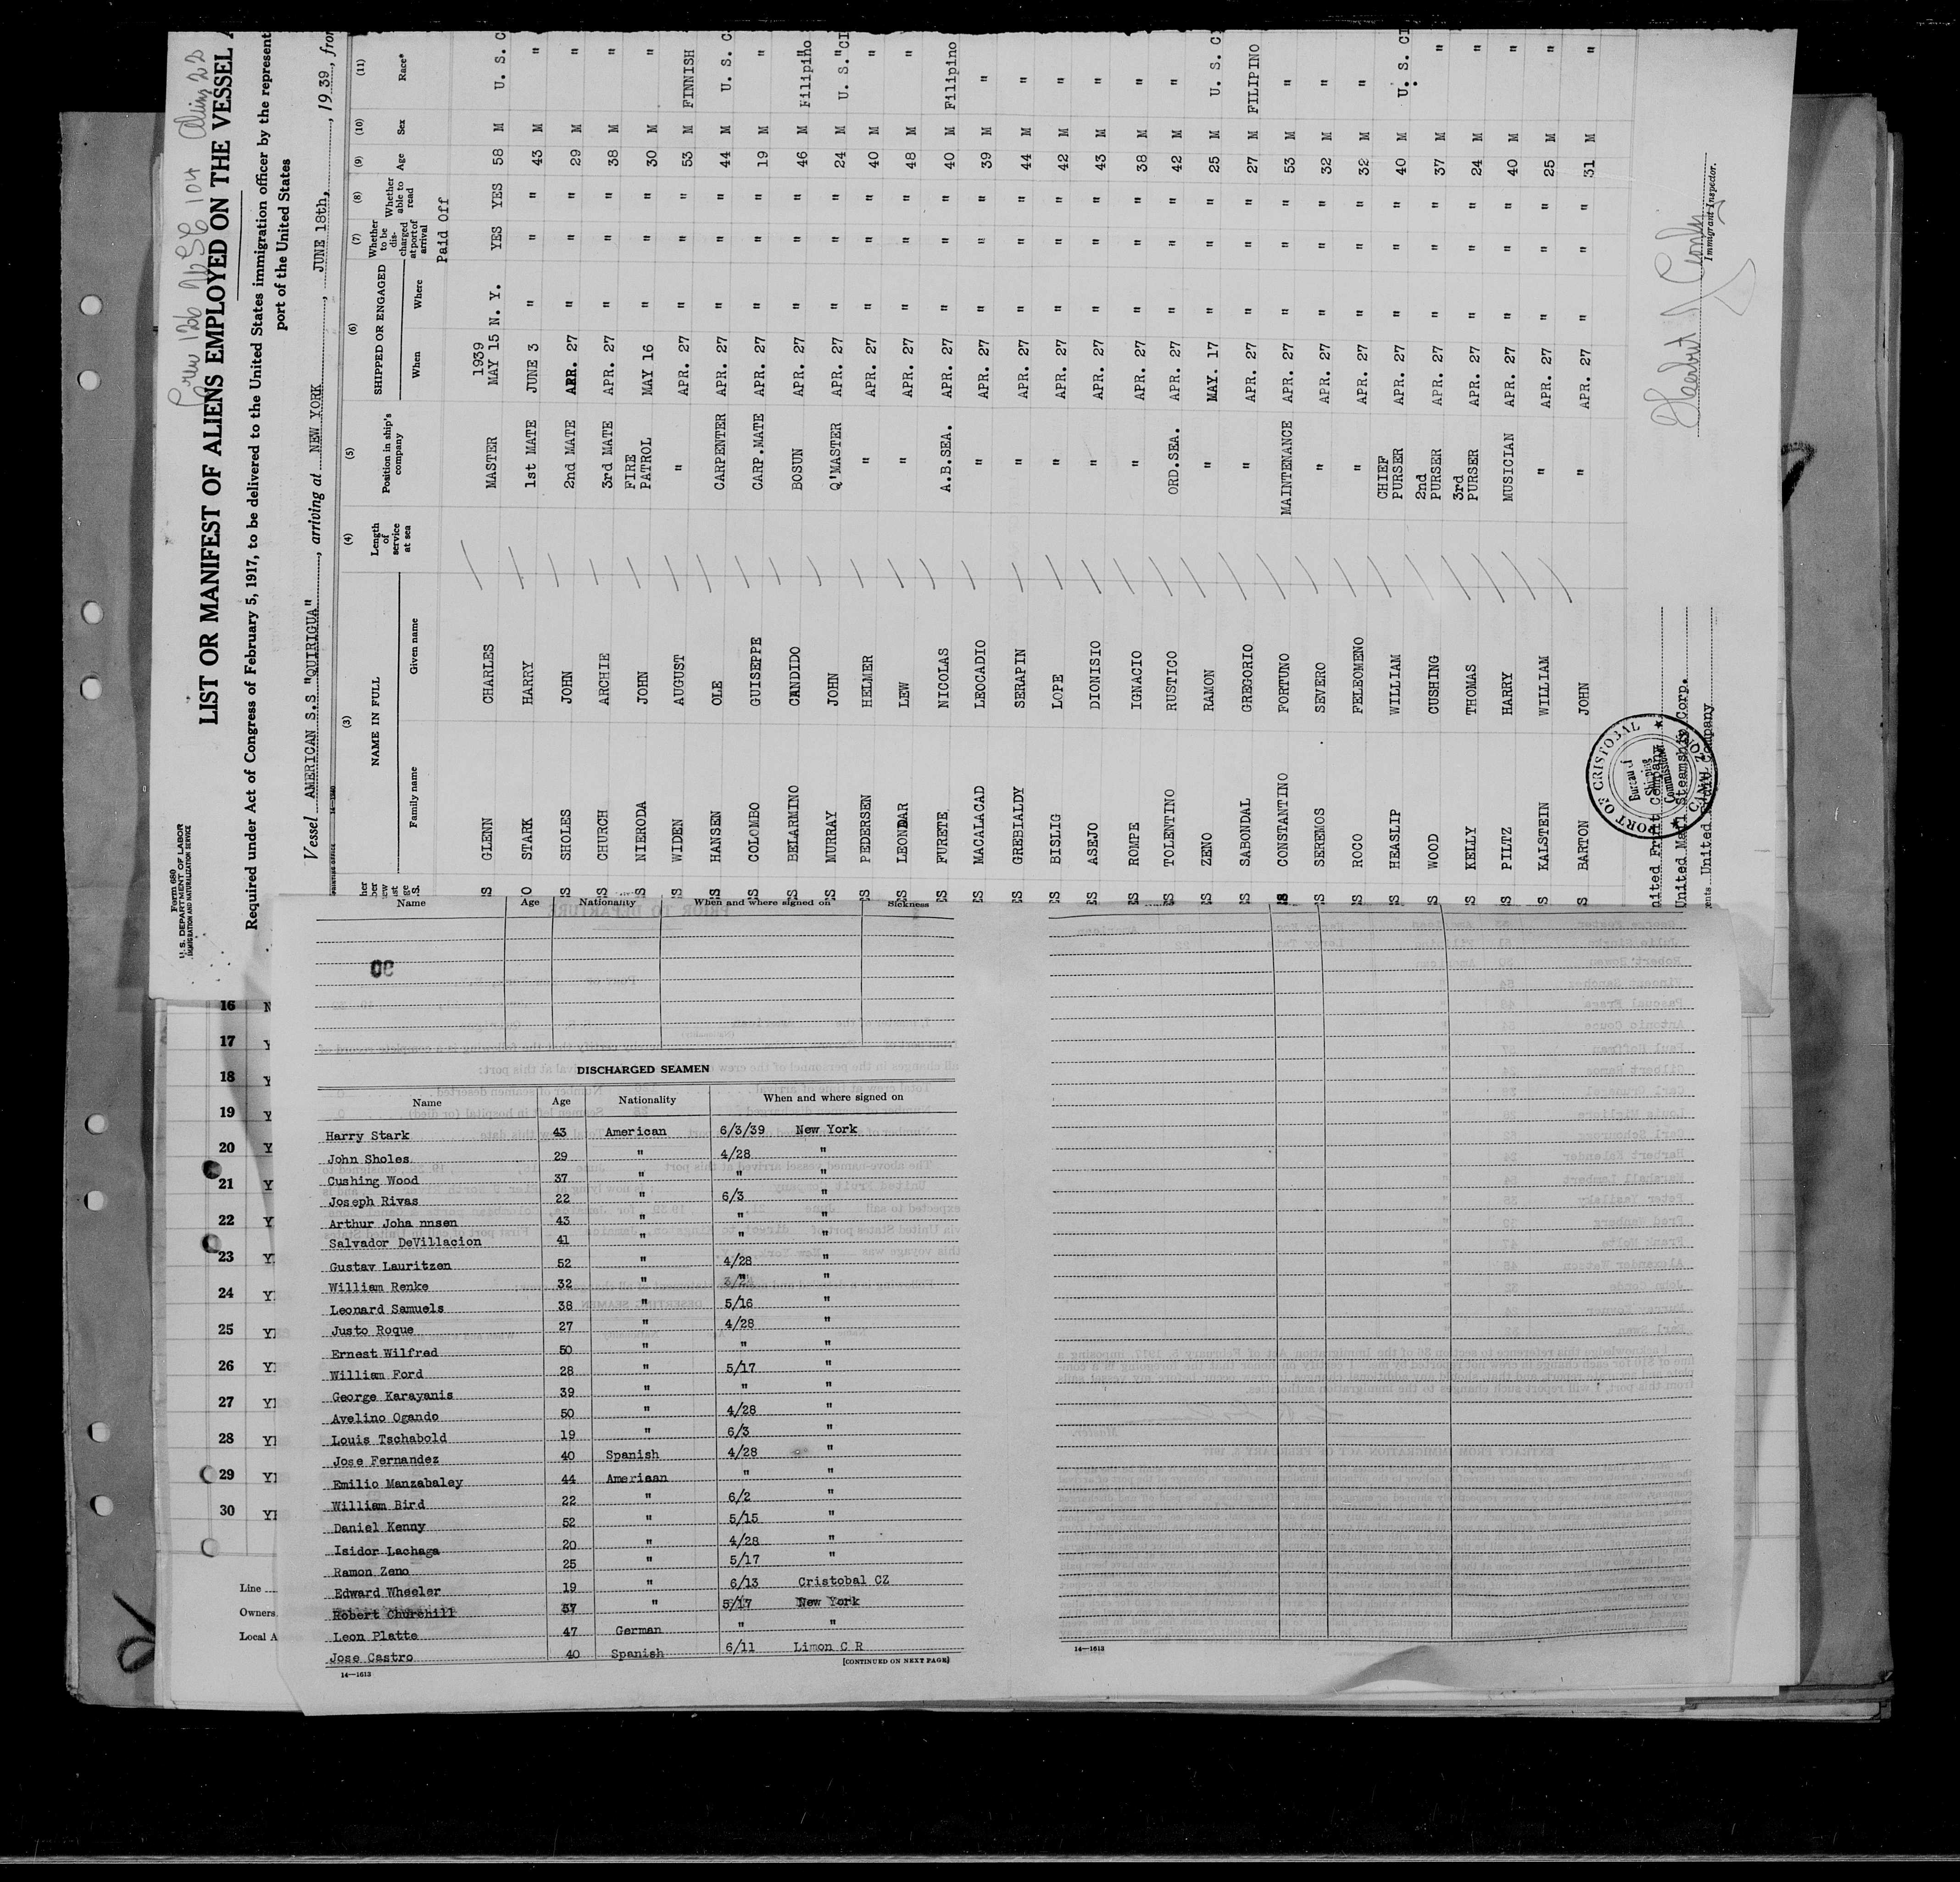 Form 680
U.S. DEPARTMENT OF LABOR
IMMIGRATION AND NATURALIZATION SERVICE
LIST OR MANIFEST OF ALIENS EMPLOYED ON THE VESSEL
Required under Act of Congress of February 5, 1917, to be delivered to the United States immigration officer by the represent
port of the United States
Vessel AMERICAN S.S "QUIRIGUA", arriving at NEW YORK, JUNE 18th, 1939, from
(3) (4) (5) (6) (7) (8) (9) (10) (11)
NAME IN FULL Length of service at sea Position in ship's company SHIPPED OR ENGAGED Whether to be discharged at port of arrival Whether able to read Age Sex Race*
Family name Given name When Where
Paid Off
1939
GLENN CHARLES MASTER MAY 15 N. Y. YES YES 58 M U. S. C
STARK HARRY 1st MATE JUNE 3 " " " 43 M "
SHOLES JOHN 2nd MATE APR. 27 " " " 29 M "
CHURCH ARCHIE 3rd MATE APR. 27 " " " 38 M "
NIERODA JOHN FIRE PATROL MAY 16 " " " 30 M "
WIDEN AUGUST " APR. 27 " " " 53 M FINNISH
HANSEN OLE CARPENTER APR. 27 " " " 44 M U. S. C.
COLOMBO GUISEPPE CARP.MATE APR. 27 " " " 19 M "
BELARMINO CANDIDO BOSUN APR. 27 " " " 46 M Filipino
MURRAY JOHN Q'MASTER APR. 27 " " " 24 M U. S. CI
PEDERSEN HELMER " APR. 27 " " " 40 M "
LEONDAR LEW " APR. 27 " " " 48 M "
FURETE NICOLAS A.B.SEA. APR. 27 " " " 40 M Filipino
MACALAGAD LEOCADIO " APR. 27 " " " 39 M "
GREBIALDY SERAPIN " APR. 27 " " " 44 M "
BISLIG LOPE " APR. 27 " " " 42 M "
ASEJO DIONISIO " APR. 27 " " " 43 M "
ROMPE IGNACIO " APR. 27 " " " 38 M "
TOLENTINO RUSTICO ORD.SEA. APR. 27 " " " 42 M "
ZENO RAMON " MAY. 17 " " " 25 M U. S. CI
SABONDAL GREGORIO " APR. 27 " " " 27 M FILIPINO
CONSTANTINO FORTUNO MAINTENANCE APR. 27 " " " 53 M "
SEREMOS SEVERO " APR. 27 " " " 32 M "
ROCO FELEOMENO " APR. 27 " " " 32 M "
HEASLIP WILLIAM CHIEF PURSER APR. 27 " " " 40 M U. S. CI
WOOD CUSHING 2nd PURSER APR. 27 " " " 37 M "
KELLY THOMAS 3rd PURSER APR. 27 " " " 24 M "
PILTZ HARRY MUSICIAN APR. 27 " " " 40 M "
KALSTEIN WILLIAM " APR. 27 " " " 25 M "
BARTON JOHN " APR. 27 " " " 31 M "
PORT OF CRISTOBAL
Bureau of Shipping Commissioner
CANAL ZONE
United Fruit Company
United Mail Steamship Corp.
United Fruit Company
Immigrant Inspector.
16
17
18
19
20
21
22
23
24
25
26
27
28
29
30
Line
Owners
Local A
Name Age Nationality When and where signed on Sickness
DISCHARGED SEAMEN
Name Age Nationality When and where signed on
Harry Stark 43 American 6/3/39 New York
John Sholes 29 " 4/28 "
Cushing Wood 37 " " "
Joseph Rivas 22 " 6/3 "
Arthur Joha nnsen 43 " " "
Salvador DeVillacion 41 " " "
Gustav Lauritzen 52 " 4/28 "
William Renke 32 " "
Leonard Samuels 38 " 5/16 "
Justo Roque 27 " 4/28 "
Ernest Wilfred 50 " " "
William Ford 28 " 5/17 "
George Karayanis 39 " " "
Avelino Ogando 50 " 4/28 "
Louis Tschabold 19 " 6/3 "
Jose Fernandez 40 Spanish 4/28 "
Emilio Manzabaley 44 Ameriaan " "
William Bird 22 " 6/2 "
Daniel Kenny 52 " 5/15 "
Isidor Lachaga 20 " 4/28 "
Ramon Zeno 25 " 5/17 "
Edward Wheeler 19 " 6/13 Cristobal CZ
Robert Churchill 37 " 5/17 New York
Leon Platte 47 German " "
Jose Castro 40 Spanish 6/11 Limon C R
14—1613
[CONTINUED ON NEXT PAGE]
14—1613